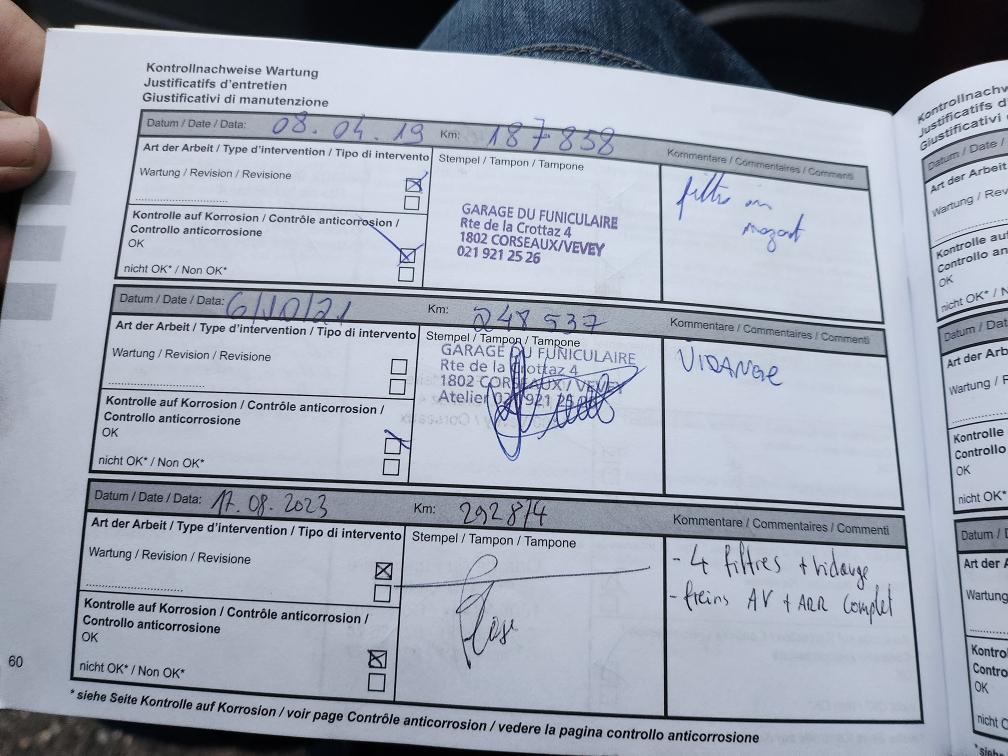 Kontrollnachweise Wartung
Justificatifs d'entretien
Giustificativi di manutenzione
Datum / Date / Data: 08.04.19 Km: 187858 Kommentare / Commentaires / Commenti
Art der Arbeit / Type d'intervention / Tipo di intervento
Stempel / Tampon / Tampone
Wartung / Revision / Revisione
Kontrolle auf Korrosion / Contrôle anticorrosion /
Controllo anticorosione
OK
nicht OK* / Non OK*
GARAGE DU FUNICULAIRE
Rte de la Crottaz 4
1802 CORSEAUX/VEVEY
021 921 25 26
filtre
mazout
Datum / Date / Data: 6/10/21 Km: 248537 Kommentare / Commentaires / Commenti
Art der Arbeit / Type d'intervention / Tipo di intervento
Stempel / Tampon / Tampone
Wartung / Revision / Revisione
Kontrolle auf Korrosion / Contrôle anticorrosion /
Controllo anticorosione
OK
nicht OK* / Non OK*
GARAGE DU FUNICULAIRE
Rte de la Crottaz 4
1802 CORSEAUX / VEVEY
Atelier 021 921 25
VIDANGE
Datum / Date / Data: 17.08.2023 Km: 292814 Kommentare / Commentaires / Commenti
Art der Arbeit / Type d'intervention / Tipo di intervento
Stempel / Tampon / Tampone
Wartung / Revision / Revisione
Kontrolle auf Korrosion / Contrôle anticorrosion /
Controllo anticorosione
OK
nicht OK* / Non OK*
- 4 filtres + vidange
- freins AV + ARR complet
60
* siehe Seite Kontrolle auf Korrosion / voir page Contrôle anticorrosion / vedere la pagina controllo anticorrosione
Kontrollnachw
Justificatifs d
Giustificativi
Datum / Date /
Art der Arbeit
Wartung / Rev
Kontrolle au
Controllo an
OK
nicht OK* / N
Datum / Da
Art der Arbe
Wartung / R
Kontrolle
Controllo
OK
nicht OK*
Datum / D
Art der A
Wartung
Kontro
Contro
OK
nicht O